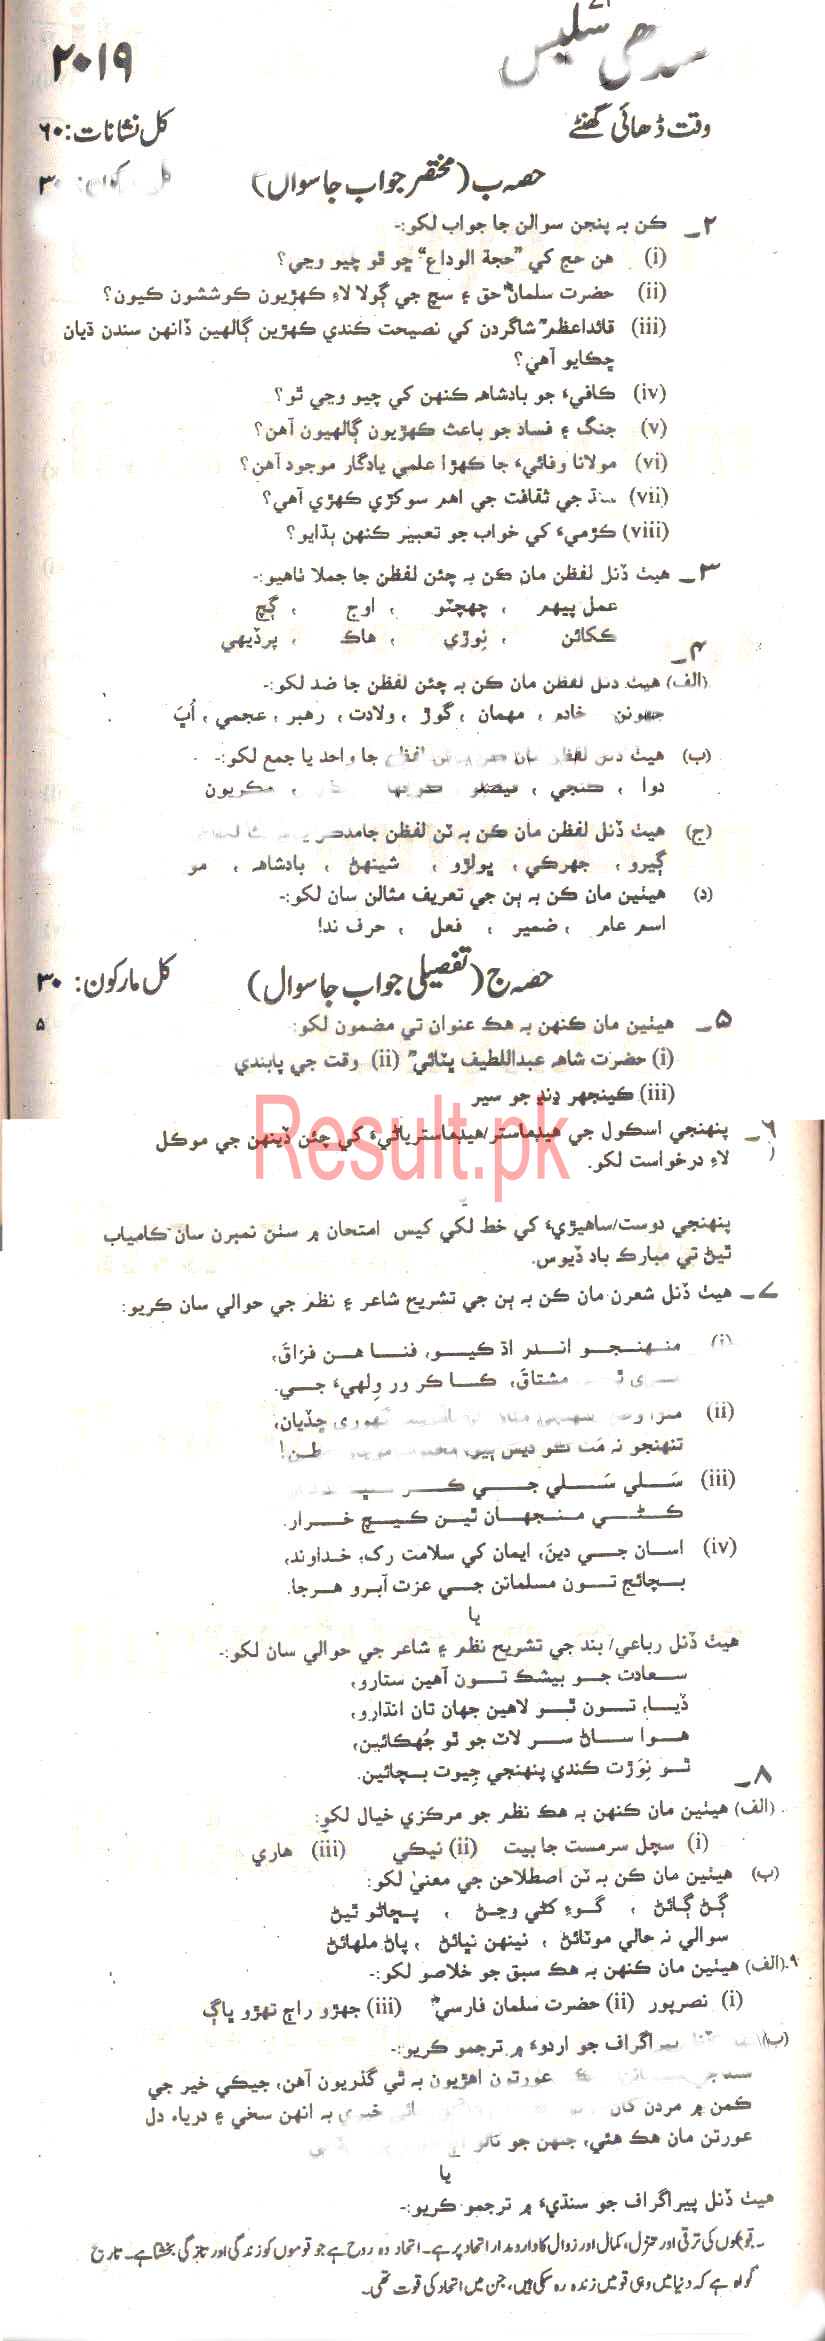 سندھی سلیس
۲۰۱۹
وقت ڈھائی گھنٹے
کل نشانات: ۶۰
حصہ ب (مختصر جواب جا سوال)
۳۰
۲ـ ڪن بہ پنجن سوالن جا جواب لکو:-
(i) هن حج کي "حجة الوداع" ڇو ٿو چيو وڃي؟
(ii) حضرت سلمانؓ حق ۽ سچ جي ڳولا لاءِ ڪهڙيون ڪوششون ڪيون؟
(iii) قائداعظمؒ شاگردن کي نصيحت ڪندي ڪهڙين ڳالهين ڏانهن سندن ڌيان
ڇڪايو آهي؟
(iv) ڪافيءَ جو بادشاهہ ڪنهن کي چيو وڃي ٿو؟
(v) جنگ ۽ فساد جو باعث ڪهڙيون ڳالهيون آهن؟
(vi) مولانا وفائيءَ جا ڪهڙا علمي يادگار موجود آهن؟
(vii) سنڌ جي ثقافت جي اهم سوکڙي ڪهڙي آهي؟
(viii) ڪڙميءَ کي خواب جو تعبير ڪنهن ٻڌايو؟
۳ـ هيٺ ڏنل لفظن مان ڪن بہ چئن لفظن جا جملا ٺاهيو:-
عمل پيهم ، ڇهڇٽو ، اوج ، ڳچ
ڪڪائن ، نِوڙي ، هاڪ ، پرڏيهي
۴ـ
(الف) هيٺ ڏنل لفظن مان ڪن بہ چئن لفظن جا ضد لکو:-
خادم ، مهمان ، گوڙ ، ولادت ، رهبر ، عجمي ، اُڀ
(ب) هيٺ ڏنل لفظن مان جا واحد يا جمع لکو:-
دوا ، ڪنجي ، فيصلو ، ٻڪريون
(ج) هيٺ ڏنل لفظن مان ڪن بہ ٽن لفظن جا مذڪر يا
ڳيرو ، جهرڪي ، ڀولڙو ، شينهڻ ، بادشاهہ ، مو
(د) هيٺين مان ڪن بہ ٻن جي تعريف مثالن سان لکو:-
اسم عام ، ضمير ، فعل ، حرف ندا
حصہ ج (تفصیلی جواب جا سوال)
کل مارکون: ۳۰
۵ـ هيٺين مان ڪنهن بہ هڪ عنوان تي مضمون لکو:
۵
(i) حضرت شاهہ عبداللطيف ڀٽائيؒ (ii) وقت جي پابندي
(iii) ڪينجهر ڍنڍ جو سير
۶ـ پنهنجي اسڪول جي هيڊماستر/هيڊماسترياڻيءَ کي چئن ڏينهن جي موڪل
لاءِ درخواست لکو.
پنهنجي دوست/ساهيڙيءَ کي خط لکي کيس امتحان ۾ سٺن نمبرن سان ڪامياب
ٿيڻ تي مبارڪ باد ڏيوس.
Result.pk
۷ـ هيٺ ڏنل شعرن مان ڪن بہ ٻن جي تشريح شاعر ۽ نظم جي حوالي سان ڪريو:
(i) منهنجو اندر اڌ ڪيو، فنا هن فراق،
مشتاق، ڪا ڪر ور وِلهيءَ جي.
(ii) ڇڏيان،
تنهنجو نہ مَٽ ڪو ديس ٻيو،
(iii) سَلي سَلي جي ڪر
ڪڻي منجهان ٿين کيچ خرار.
(iv) اسان جي دين، ايمان کي سلامت رک، خداوند،
بچائج تون مسلمانن جي عزت آبرو هرجا.
يا
هيٺ ڏنل رباعي/ بند جي تشريح نظم ۽ شاعر جي حوالي سان لکو:-
سعادت جو بيشڪ تون آهين ستارو،
ڏيا، تون ٿو لاهين جهان تان انڌارو،
هوا ساڻ سر لاٽ جو ٿو جُهڪائين،
ٿو نِوَڙت ڪندي پنهنجي جِيوت بچائين.
۸ـ
(الف) هيٺين مان ڪنهن بہ هڪ نظم جو مرڪزي خيال لکو:
(i) سچل سرمست جا بيت (ii) نيڪي (iii) هاري
(ب) هيٺين مان ڪن بہ ٽن اصطلاحن جي معنيٰ لکو:
ڳڻ ڳائڻ ، گوءِ کڻي وڃڻ ، پڇاڻو ٿيڻ
سوالي نہ خالي موٽائڻ ، نينهن نڀائڻ ، پاڻ ملهائڻ
۹.(الف) هيٺين مان ڪنهن بہ هڪ سبق جو خلاصو لکو:-
(i) نصرپور (ii) حضرت سلمان فارسيؓ (iii) جهڙو راڄ تهڙو ڀاڳ
(ب) پيراگراف جو اردوءَ ۾ ترجمو ڪريو:-
عورتون اهڙيون بہ ٿي گذريون آهن، جيڪي خير جي
ڪمن ۾ مردن کان بہ انهن سخي ۽ درياءَ دل
عورتن مان هڪ هئي، جنهن جو نالو
يا
هيٺ ڏنل پيراگراف جو سنڌيءَ ۾ ترجمو ڪريو:-
قوموں کی ترقی اور تنزل، کمال اور زوال کا دارومدار اتحاد پر ہے۔ اتحاد وہ روح ہے جو قوموں کو زندگی اور تازگی بخشتا ہے۔ تاریخ
گواہ ہے کہ دنیا میں وہی قومیں زندہ رہ سکی ہیں، جن میں اتحاد کی قوت تھی۔